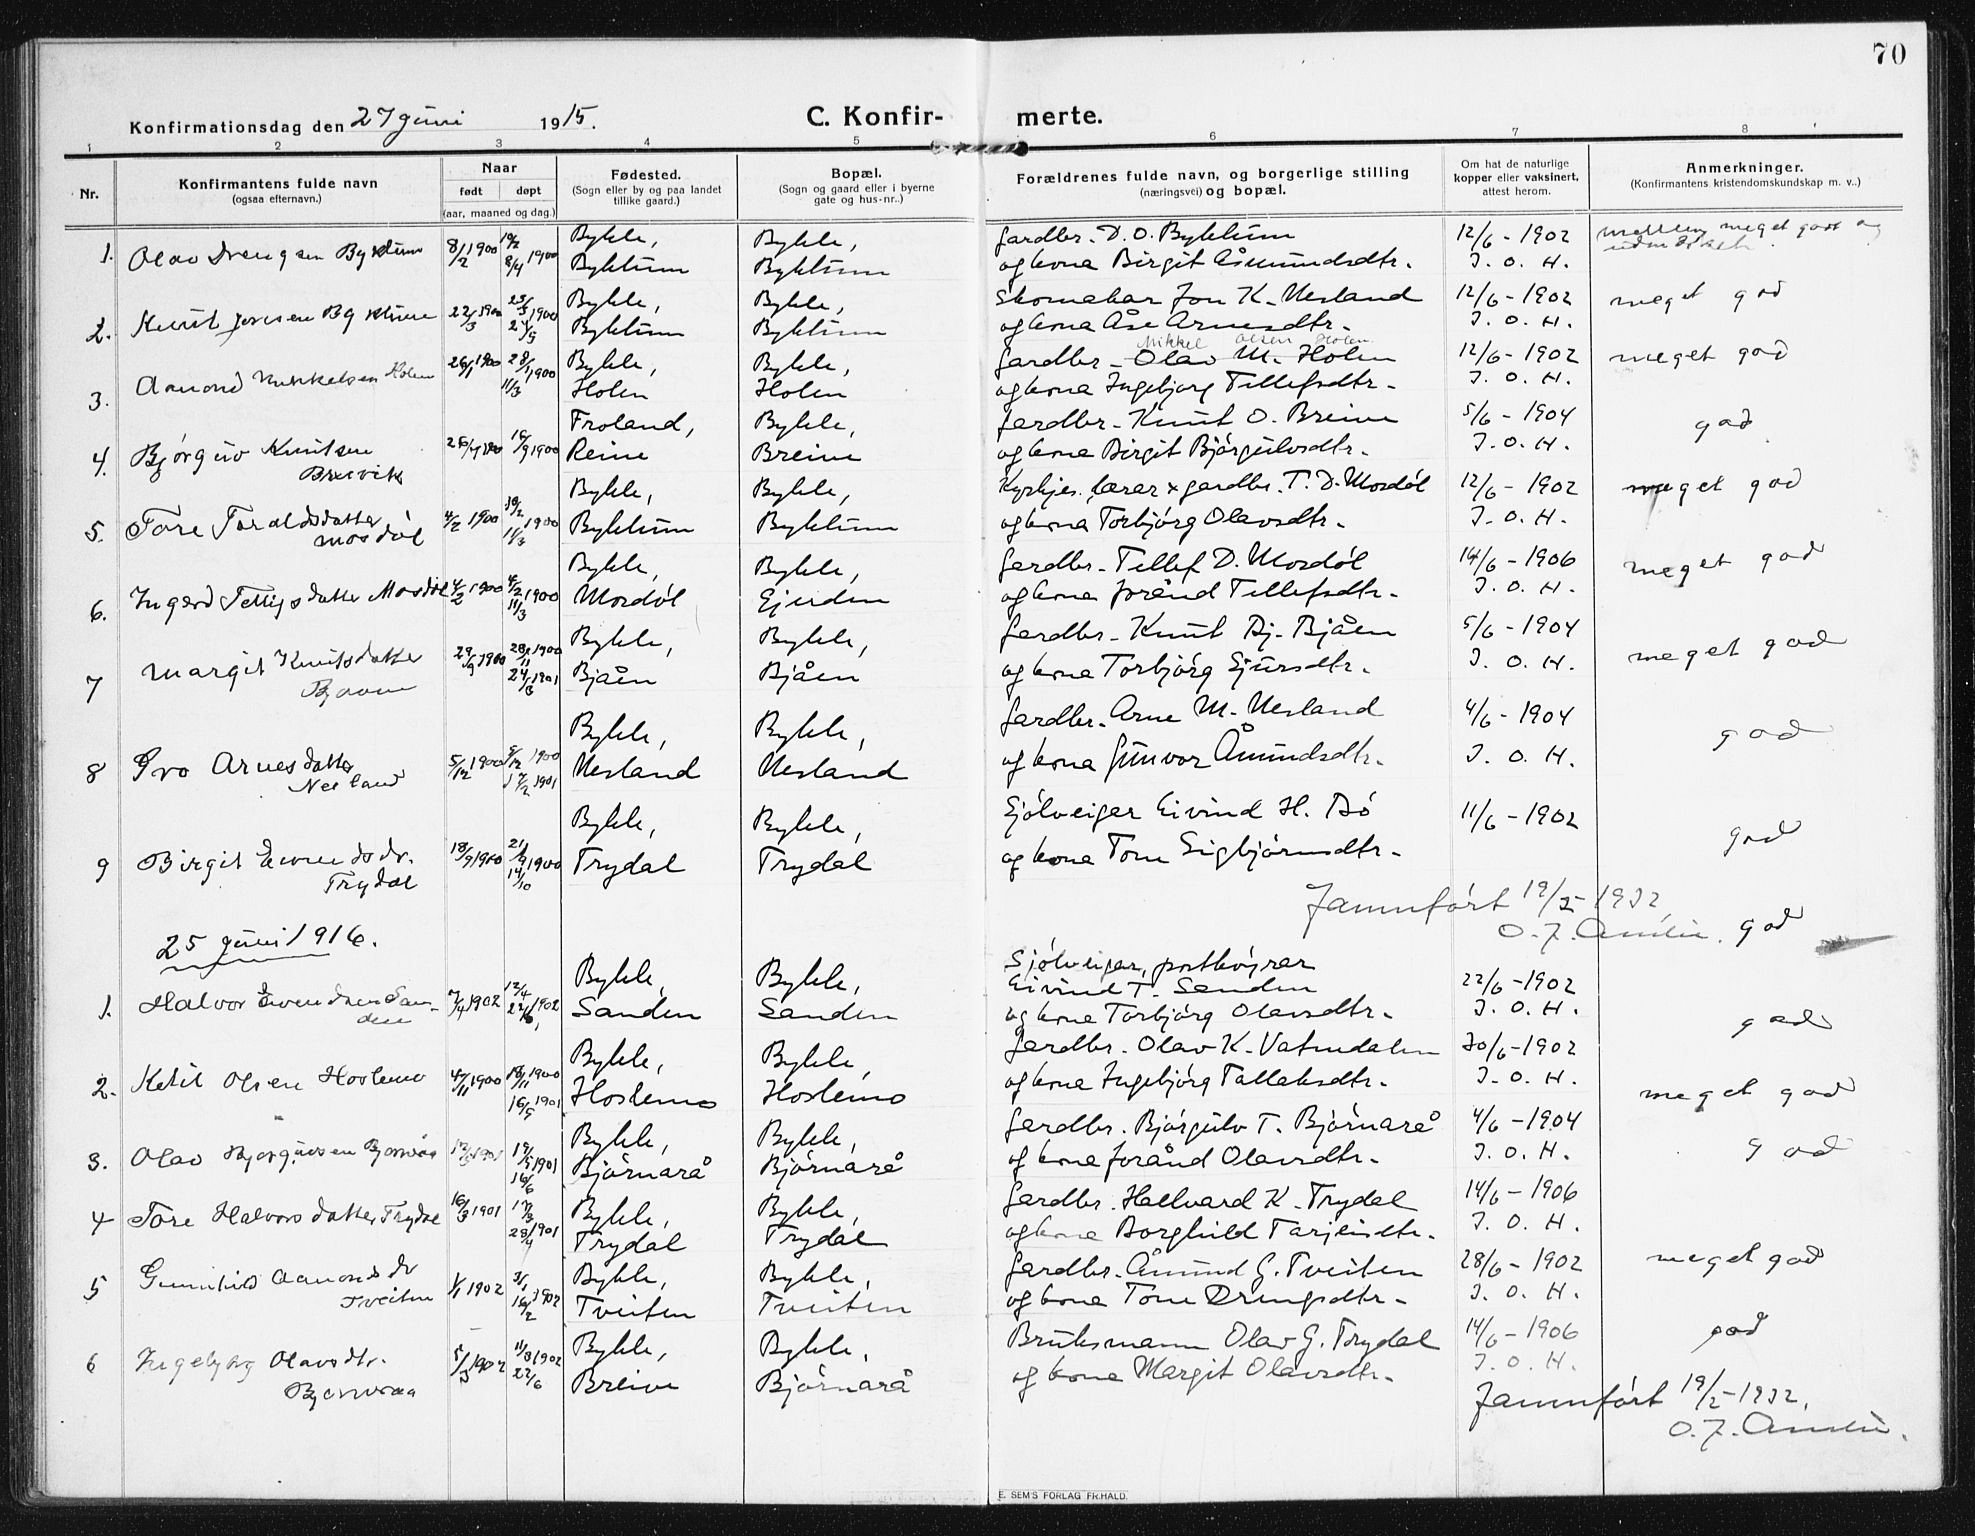 70
Konfirmationsdag den 27 juni 1915.
C. Konfirmerte.
1 2 3 4 5 6 7 8
Nr.
Konfirmantens fulde navn
(ogsaa efternavn.)
Naar
født døpt
(aar, maaned og dag.)
Fødested.
(Sogn eller by og paa landet
tillike gaard.)
Bopæl.
(Sogn og gaard eller i byerne
gate og hus-nr..)
Forældrenes fulde navn, og borgerlige stilling
(næringsvei) og bopæl.
Om hat de naturlige
kopper eller vaksinert,
attest herom.
Anmerkninger.
(Konfirmantens kristendomskundskap m. v..)
1. Olav Drengsen Byklum 8/2 1900 8/4 1900 Bykle, Byklum Bykle, Byklum
Gardbr. D. O. Byklum 12/6 - 1902 meget god og
og kona Birgit Åsmundsdtr. J. O. H.
2. Knut Jonsen Byklum 22/3 1900 23/3 1900 Bykle, Byklum Bykle, Byklum
Skomakar Jon K. Nesland 12/6 - 1902 meget god
og kona Åse Arnesdtr. J. O. H.
3. Aamond Mikkelsen Holen 26/1 1900 28/1 1900 11/3 Bykle, Holen Bykle, Holen
Mikkel Olsen Holen
Gardbr. Olav M. Holen 12/6 - 1902 meget god
og kona Ingebjorg Tellefsdtr. J. O. H.
4. Bjørguv Knutsen
Breivik 16/9 1900 Froland, Reine Bykle, Breive
Gardbr. Knut O. Breive 5/6 - 1904 god
og kona Birgit Bjørgulvsdtr. J. O. H.
5. Tore Taraldsdatter
Mosdøl 4/2 1900 11/3 1900 Bykle, Byklum Bykle, Byklum
Kyrkjes. lærar x gardbr. T. D. Mosdøl 12/6 - 1902 meget god
og kona Torbjörg Olavsdtr. J. O. H.
6. Ingerd Tellefsdatter Mosdøl 4/2 1900 4/2 1900 11/3 Bykle, Mosdøl Bykle, Gjerden
Gardbr. Tellef D. Mosdøl 14/6 - 1906 meget god
og kona Jorånd Tellefsdtr. J. O. H.
7 Margit Knutsdatter
Bjaaen 29/9 1900 28/11 1900 24/3 1901 Bykle, Bjåen Bykle, Bjåen
Gardbr. Knut Dj. Bjåen 5/6 - 1904 meget god
og kona Torbjörg Gjursdtr. J. O. H.
8 Gro Arnesdatter
Nesland 5/12 1900 5/12 1900 17/2 1901 Bykle, Nesland Bykle, Nesland
Gardbr. Arne M. Nesland 4/6 - 1904 god
og kona Gunvor Åmundsdtr. J. O. H.
9 Birgit Eivindsdr.
Trydal 18/9 1900 21/9 1900 14/10 Bykle, Trydal Bykle, Trydal
Sjölveigar Eivind H. Bö 11/6 - 1902 god
og kona Tone Sigbjörnsdtr.
Jamnført 19/2 - 1932,
god
25 juni 1916.
1. Halvor Eivendsen Sanden 7/4 1902 12/4 1902 Bykle, Sanden Bykle, Sanden
Sjölveigar, postköyrar
Eivind T. Sanden 22/6 - 1902
og kona Torbjörg Olavsdtr. J. O. H. god
2. Ketil Olsen Hoslemo 4/11 1900 18/11 1900 16/5 1901 Bykle, Hoslemo Bykle, Hoslemo
Gardbr. Olav K. Vatndalen 30/6 - 1902
og kona Ingebjörg Tallaksdtr. J. O. H. meget god
3. Olav Bjørguvsen Bjørnaraa 19/5 1901 16/6 Bykle, Björnarå Bykle, Björnarå
Gardbr. Björgulv T. Björnarå 4/6 - 1904
og kona Jorånd Olavsdtr. J. O. H. god
4 Tore Halvorsdatter Trydal 16/3 1901 17/3 28/4 1901 Bykle, Trydal Bykle, Trydal
Gardbr. Hallvard K. Trydal 14/6 - 1906
og kona Borghild Tarjeisdtr. J. O. H.
5 Gunhild Aamondsdr
Tveiten 1/1 1902 3/1 16/2 1902 Bykle, Tveiten Bykle, Tveiten
Gardbr. Åmund G. Tveiten 28/6 - 1902 meget god
og kona Tone Drengsdtr. J. O. H.
6 Ingebjorg Olavsdtr.
Bjørnaraa 5/3 1902 11/3 1902 22/6 Bykle, Breive Bykle, Björnarå
Bruksmann Olav G. Trydal 14/6 - 1906 god
og kona Margit Olavsdtr. J. O. H.
Jamnført 19/2 - 1932.
E. SEM'S FORLAG FR.HALD.